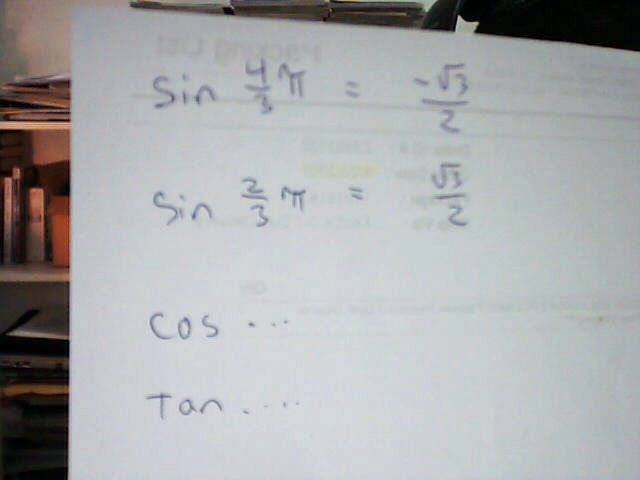 sin 4/3 π = -√3/2
sin 2/3 π = √3/2
cos ...
Tan ....